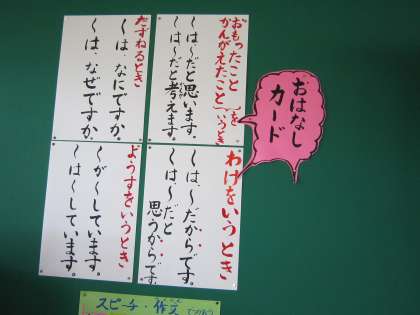 おはなし
カード
おもったこと
かんがえたこと を いうとき
〜は〜だと思います。
〜は〜だと考えます。
たずねるとき
〜は、なにですか。
〜は、なぜですか。
わけをいうとき
〜は、〜だからです。
〜は〜だと
思うからです。
ようすをいうとき
〜が〜しています。
〜は〜しています。
スピーチ・作文